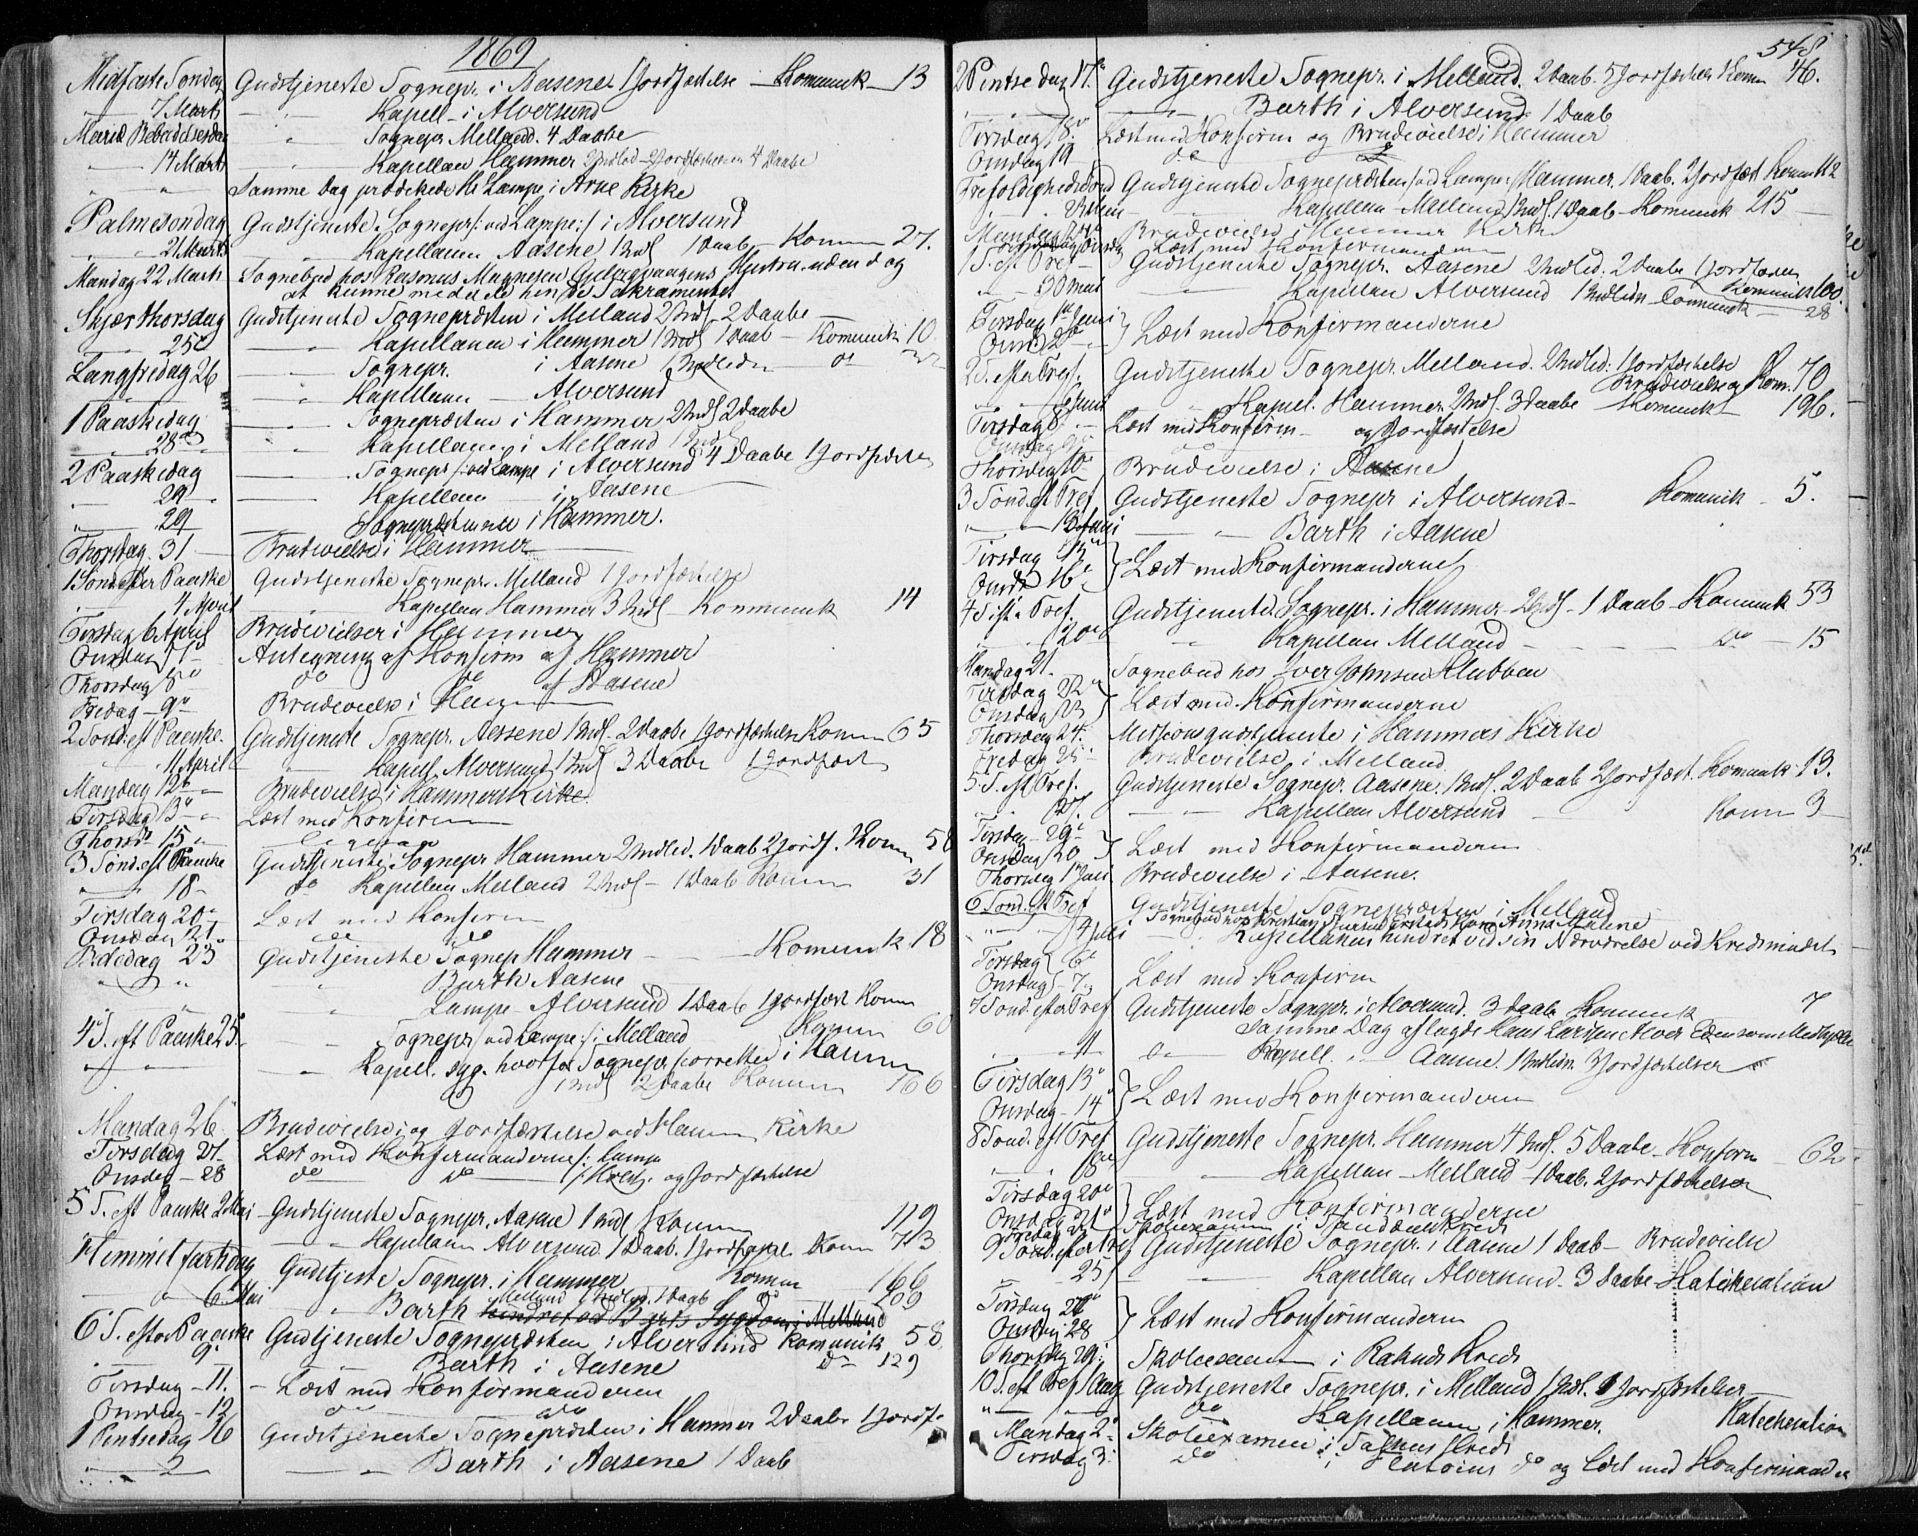 1869
Midfaste Søndag Gudstjeneste Sognepr. i Aasene 1 Jordfæstelse - Komunik 13
7 Marts - " Kapell - i Alversund
Mariæ Bebudelsesdag " Sognepr. Melland. 4 Daabe
14 Marts " Kapellan Hammer 4 Daabe
" " Samme Dag prædikede Lampe i Arne Kirke
Palmesøndag Gudstjeneste Sognepr. /: ved Lampe :/ i Alversund
21 Marts " Kapellanen Aasene 1 Indl 1 Daab - Komun 27.
Mandag 22 Marts Sognebud hos Rasmus Magnesen Hustru. uden dog
at kunne meddele hende Sakramentet
Skjærthorsdag Gudstjeneste Sognepræsten i Melland 2 Indl - 2 Daabe
25 " Kapellanen i Hammer 1 Indl 1 Daab - Komunik 10
Langfredag 26 " Sognepr. i Aasne 1 Indledn do
" Kapellanen - Alversund
1 Paaskedag " Sognepræsten i Hammer 2 Indl 2 Daabe
28 " Kapellanen i Melland 1 Indl
2 Paaskedag " Sognepr /: ved Lampe i Alversund 4 Daabe 1 Jordfæstelse
29 " Kapellanen i Aasene
" 29 Sognepræsten i Hammer.
Thorsdag 31 Brudevielse i Hammer
1 Sønd. efter Paaske Gudstjeneste Sognepr Melland 1 Jordfæstelse
4 April " Kapellan Hammer 3 Indl - Kommunik 14
Tirsdag 6 April Brudevielser i Hammer
Onsdag 7 Antegning af Konfirm af Hammer
Thorsdag 8 do do af Aasene
Fredag 9 Brudevielse i Hammer
2 Sønd. eft Paaske. Gudstjeneste Sognepr. Aasene 1 Indl. 2 Daabe 1 Jordfæstelse Komun 65
11 April " Kapell. Alversund 1 Indl 3 Daabe 1 Jordfæst
Mandag 12 Brudevielse i Hammers Kirke
Tirsdag 13 Læst med Konfirm
Thorsd. 15
3 Sønd. eft Paaske Gudstjeneste Sognepr Hammer 2 Indled. 1 Daab 2 Jordf. Kom 58
18 do Kapellan Melland 2 Indl - 1 Daab Komun 31
Tirsdag 20 Læst med Konfirm
Onsdag 21 do do
Bededag 23 Gudstjeneste Sognepr Hammer Komunik. 18
" " Barth Aasene
" Lampe Alversund 1 Daab 1 Jordfæst Komun
4 S. eft Paaske 25. Sognepr /: ved Lampe :/ i Melland Komun 60
" " Kapell. syg. hvorfor Sognepr forrettede i Hammer
1 Indl 2 Daabe Komun 166
Mandag 26 Brudevielse og Jordfæstelse ved Hammer Kirke
Tirsdag 27 Læst med Konfirmanderne
Onsdag 28 do do og Jordfæstelse
5 S. eft Paaske 2 Mai Gudstjeneste Sognepr. Aasene 1 Indl Komun 119
" Kapellanen Alversund. 1 Daab. 1 Jordfæst. Komun 73
Himmelfartsdag Gudstjeneste Sognepr. i Hammer Komun 166
6 Mai " Barth Melland 1 Indled. 1 Daab do 209
6 S. efter Paaske Gudstjeneste Sognepræsten i Alversund Komunik 58
9. " Barth i Aasene do 129
Tirsdag 11. Læst med Konfirmanderne
Onsdag 12 do do
1 Pintsedag 16 Gudstjeneste Sognepræsten i Hammer 2 Daabe 1 Jordf.
" Barth i Aasene 1 Daab
548
2 Pintsedag 17. Gudstjeneste Sognepr. i Melland. 2 Daab. 5 Jordfæstelse Komun 46.
" Barth i Alversund 1 Daab
Tirsdag 18 Læst med Konfirm og Brudevielse i Hammer
Onsdag 19 do
Trefoldighedssønd Gudstjeneste Sognepræsten /: ved Lampe :/ Hammer. 1 Daab. 2 Jordfæst Komun 112
" Kapellan Melland 1 Indl. 1 Daab - Komunik 215
Mandag 24 Brudevielse i Hammer Kirke
Læst med Konfirmanderne
1 S. eft Tref. Gudstjeneste Sognepr. Aasene 2 Indled. 2 Daabe 1 Jordfæstelse Komunik 160.
30 Mai " Kapellan Alversund 1 Indledn Communik 28
Tirsdag 1 Juni } Læst med Konfirmanderne
Onsd 2
2 S. efter Tref. Gudstjeneste Sognepr Melland. 2 Indled. 1 Jordfæstelse Brudevielse Kom. 70
6 Juni Kapel. Hammer 2 Indl. 3 Daabe Komunik 196.
Tirsdag 8. Læst med Konfirm og Jordfæstelse
Onsdag 9
Thorsdag 10 Brudevielse i Aasene
3 Sønd. eft Tref Gudstjeneste Sognepr i Alversund - Komunik - 5.
13 Juni " Barth i Aasene
Tirsdag 15 } Læst med Konfirmanderne
Onsd 16
4 S. eft Tref. Gudstjeneste Sognepr. i Hammer 2 Indl - 1 Daab - Komunik 53
20 " Kapellan Melland do 15
Mandag 21. Sognebud hos Iver Johnsen Klubben
Tirsdag 22 } Læst med Konfirmanderne
Onsdag 23
Thorsdag 24. Missions gudstjeneste i Hammers Kirke
Fredag 25 Brudevielse i Melland
5 S. eft Tref. Gudstjeneste Sognepr. Aasene. 1 Indl. 2 Daab 2 Jordfæst. Komunik 13.
27. " Kapellan Alversund Komun 3
Tirsdag 29 } Læst med Konfirmanderne
Onsdag 30
Thorsdag 1 Juli Brudevielse i Aasene.
6 Sønd. eft Tref Gudstjeneste Sognepræsten i Melland
Sognebud hos Kone Anna Malene
4 Juli Kapellanen hindret ved sin Nærværelse ved Kredsmødet
Tirsdag 6 Læst med Konfirm
Onsdag 7
7 Sønd. efter Tref Gudstjeneste Sognepr. i Alversund. 3 Daab Komunik 7
Samme Dag aflagde Hans Larsen Alver Eden som Medhjælper
11 do Kapell. Aasene. 1 Indledn. 3 Jordfæstelser
Tirsdag 13 } Læst med Konfirmanderne
Onsdag 14
8 Sønd. eft Tref Gudstjeneste Sognepr. Hammer 4 Indl. 5 Daabe - 62
18 " Kapellan Melland 1 Daab. 2 Jordfæstelser
Tirsdag 20 } Læst med Konfirmanderne
Onsdag 21
Fredag 23 Skoleexamen i Kreds
9 Sønd. efter Tref Gudstjeneste Sognepr. i Aasene 1 Daab - Brudevielse
25 " Kapellan Alversund. 3 Daabe - Katekisation
Tirsdag 27 } Læst med Konfirmanderne
Onsdag 28
Thorsdag 29. Skoleexamen i Raknes Kreds
10 S. eft Tref 1 Aug Gudstjeneste Sognepr. i Melland 1 Indl. Jordfæstelser
" do Kapellanen i Hammer. Katechesation
Mandag 2 Skoleexamen i Kreds
Tirsdag 3. do i do og læst med Konfirmander